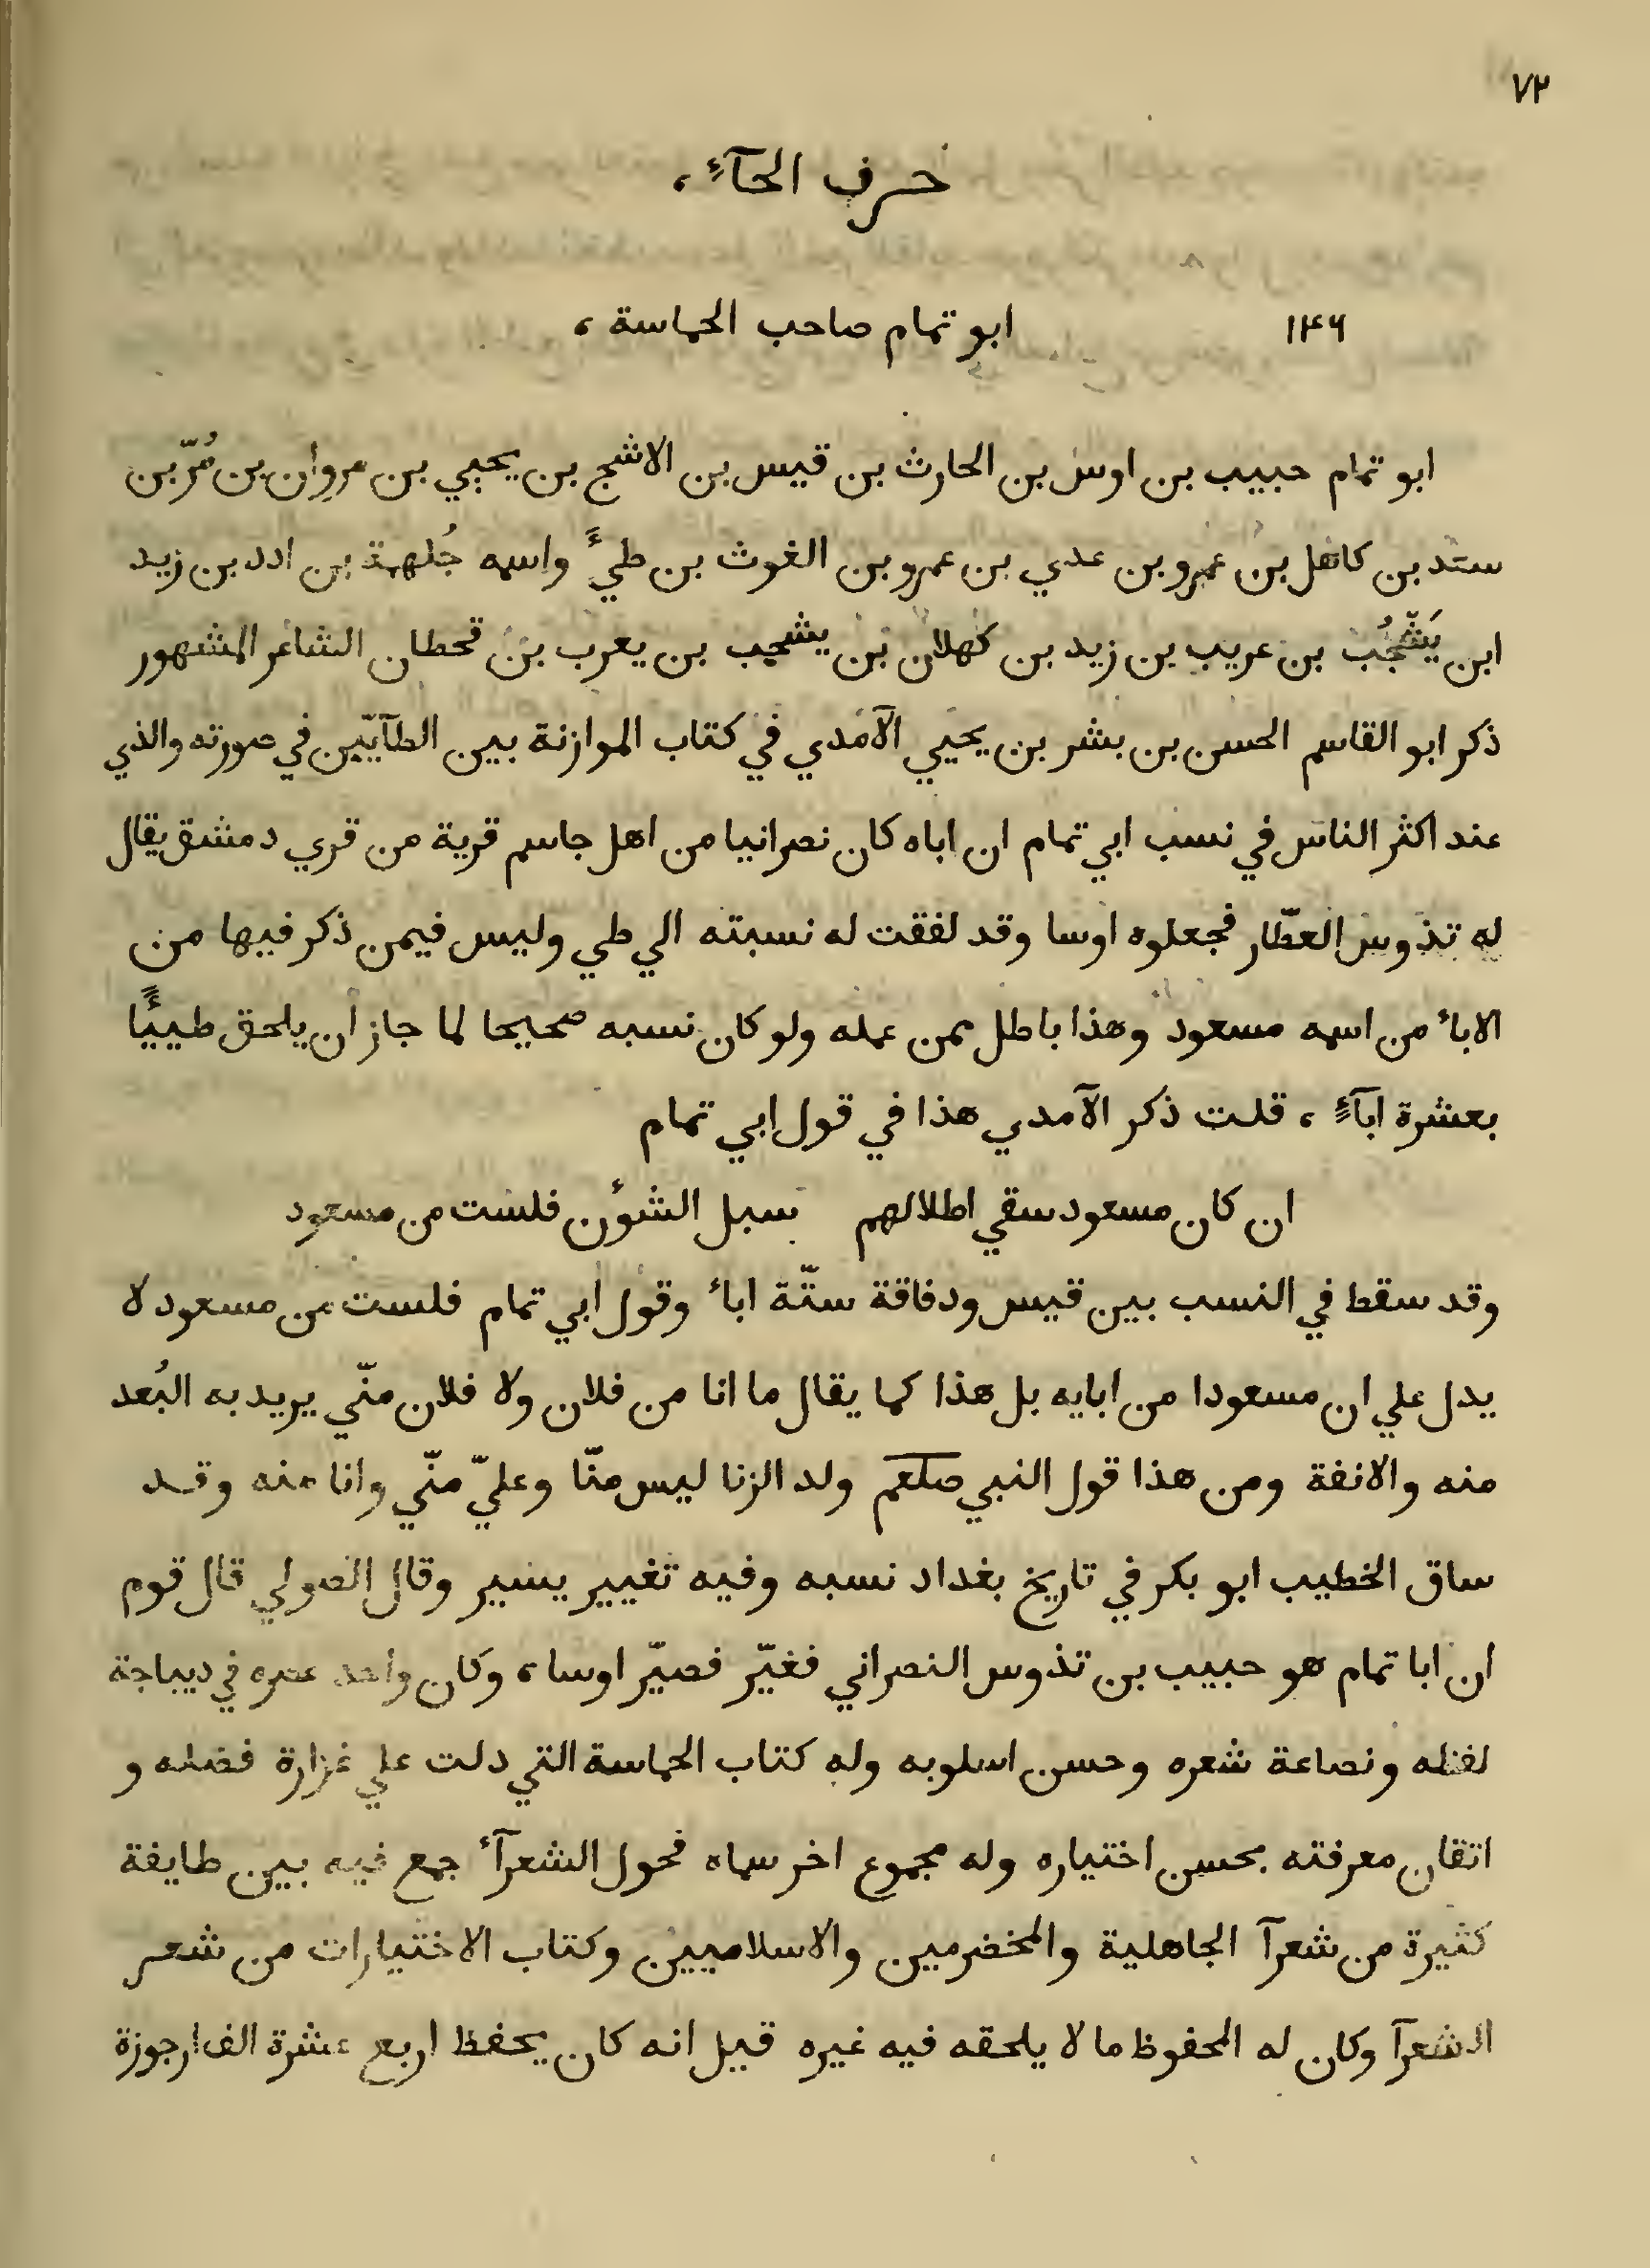 ٧٢
حرف الحآءِ،
١٤٦ ابو تمام صاحب الحماسة ،
ابو تمام حبيب بن اوس بن الحارث بن قيس بن الاشج بن يحيي بن مروان بن مُرّ بن
سعد بن كاهل بن عمرو بن عدي بن عمرو بن الغوث بن طيءً واسمه جُلهمة بن ادد بن زيد
ابن يَشْجُب بن عريب بن زيد بن كهلان بن يشجب بن يعرب بن قحطان الشاعر المشهور
ذكر ابو القاسم الحسن بن بشر بن يحيي الآمدي في كتاب الموازنة بين الطآيّين في صورته والذي
عند اكثر الناس في نسب ابي تمام ان اباه كان نصرانيا من اهل جاسم قرية من قري دمشق يقال
له تذوس العطّار فجعلوه اوسا وقد لفقت له نسبته الي طي وليس فيمن ذكر فيها من
الاباء من اسمه مسعود وهذا باطل ممن عمله ولو كان نسبه صحيحا لما جاز أن يلحق طيئًا
بعشرة ابآءٍ ، قلت ذكر الآمدي هذا في قول ابي تمام
ان كان مسعود سقي اطلالهم سبل الشؤن فلست من مسعودِ
وقد سقط في النسب بين قيس ودفاقة ستّة اباء وقول أبي تمام فلست من مسعود لا
يدل علي ان مسعودا من ابايه بل هذا كما يقال ما انا من فلان ولا فلان منّي يريد به البُعد
منه والانفة ومن هذا قول النبي صلعم ولد الزنا ليس منّا وعليّ منّي وانا منه وقد
ساق الخطيب ابو بكر في تاريخ بغداد نسبه وفيه تغيير يسير وقال الصولي قال قوم
ان ابا تمام هو حبيب بن تذوس النصراني فغيّر فصيّر اوسا ، وكان واحد عصره في ديباجة
لفظه ونصاعة شعره وحسن اسلوبه وله كتاب الحماسة التي دلت علي غزارة فضله و
اتقان معرفته بحسن اختياره وله مجموع اخر سماه فحول الشعرآء جمع فيه بين طايفة
كثيرة من شعرآ الجاهلية والمخضرمين والاسلاميين وكتاب الاختيارات من شعر
الشعرآ وكان له المحفوظ ما لا يلحقه فيه غيره قيل انه كان يحفظ اربع عشرة الف ارجوزة